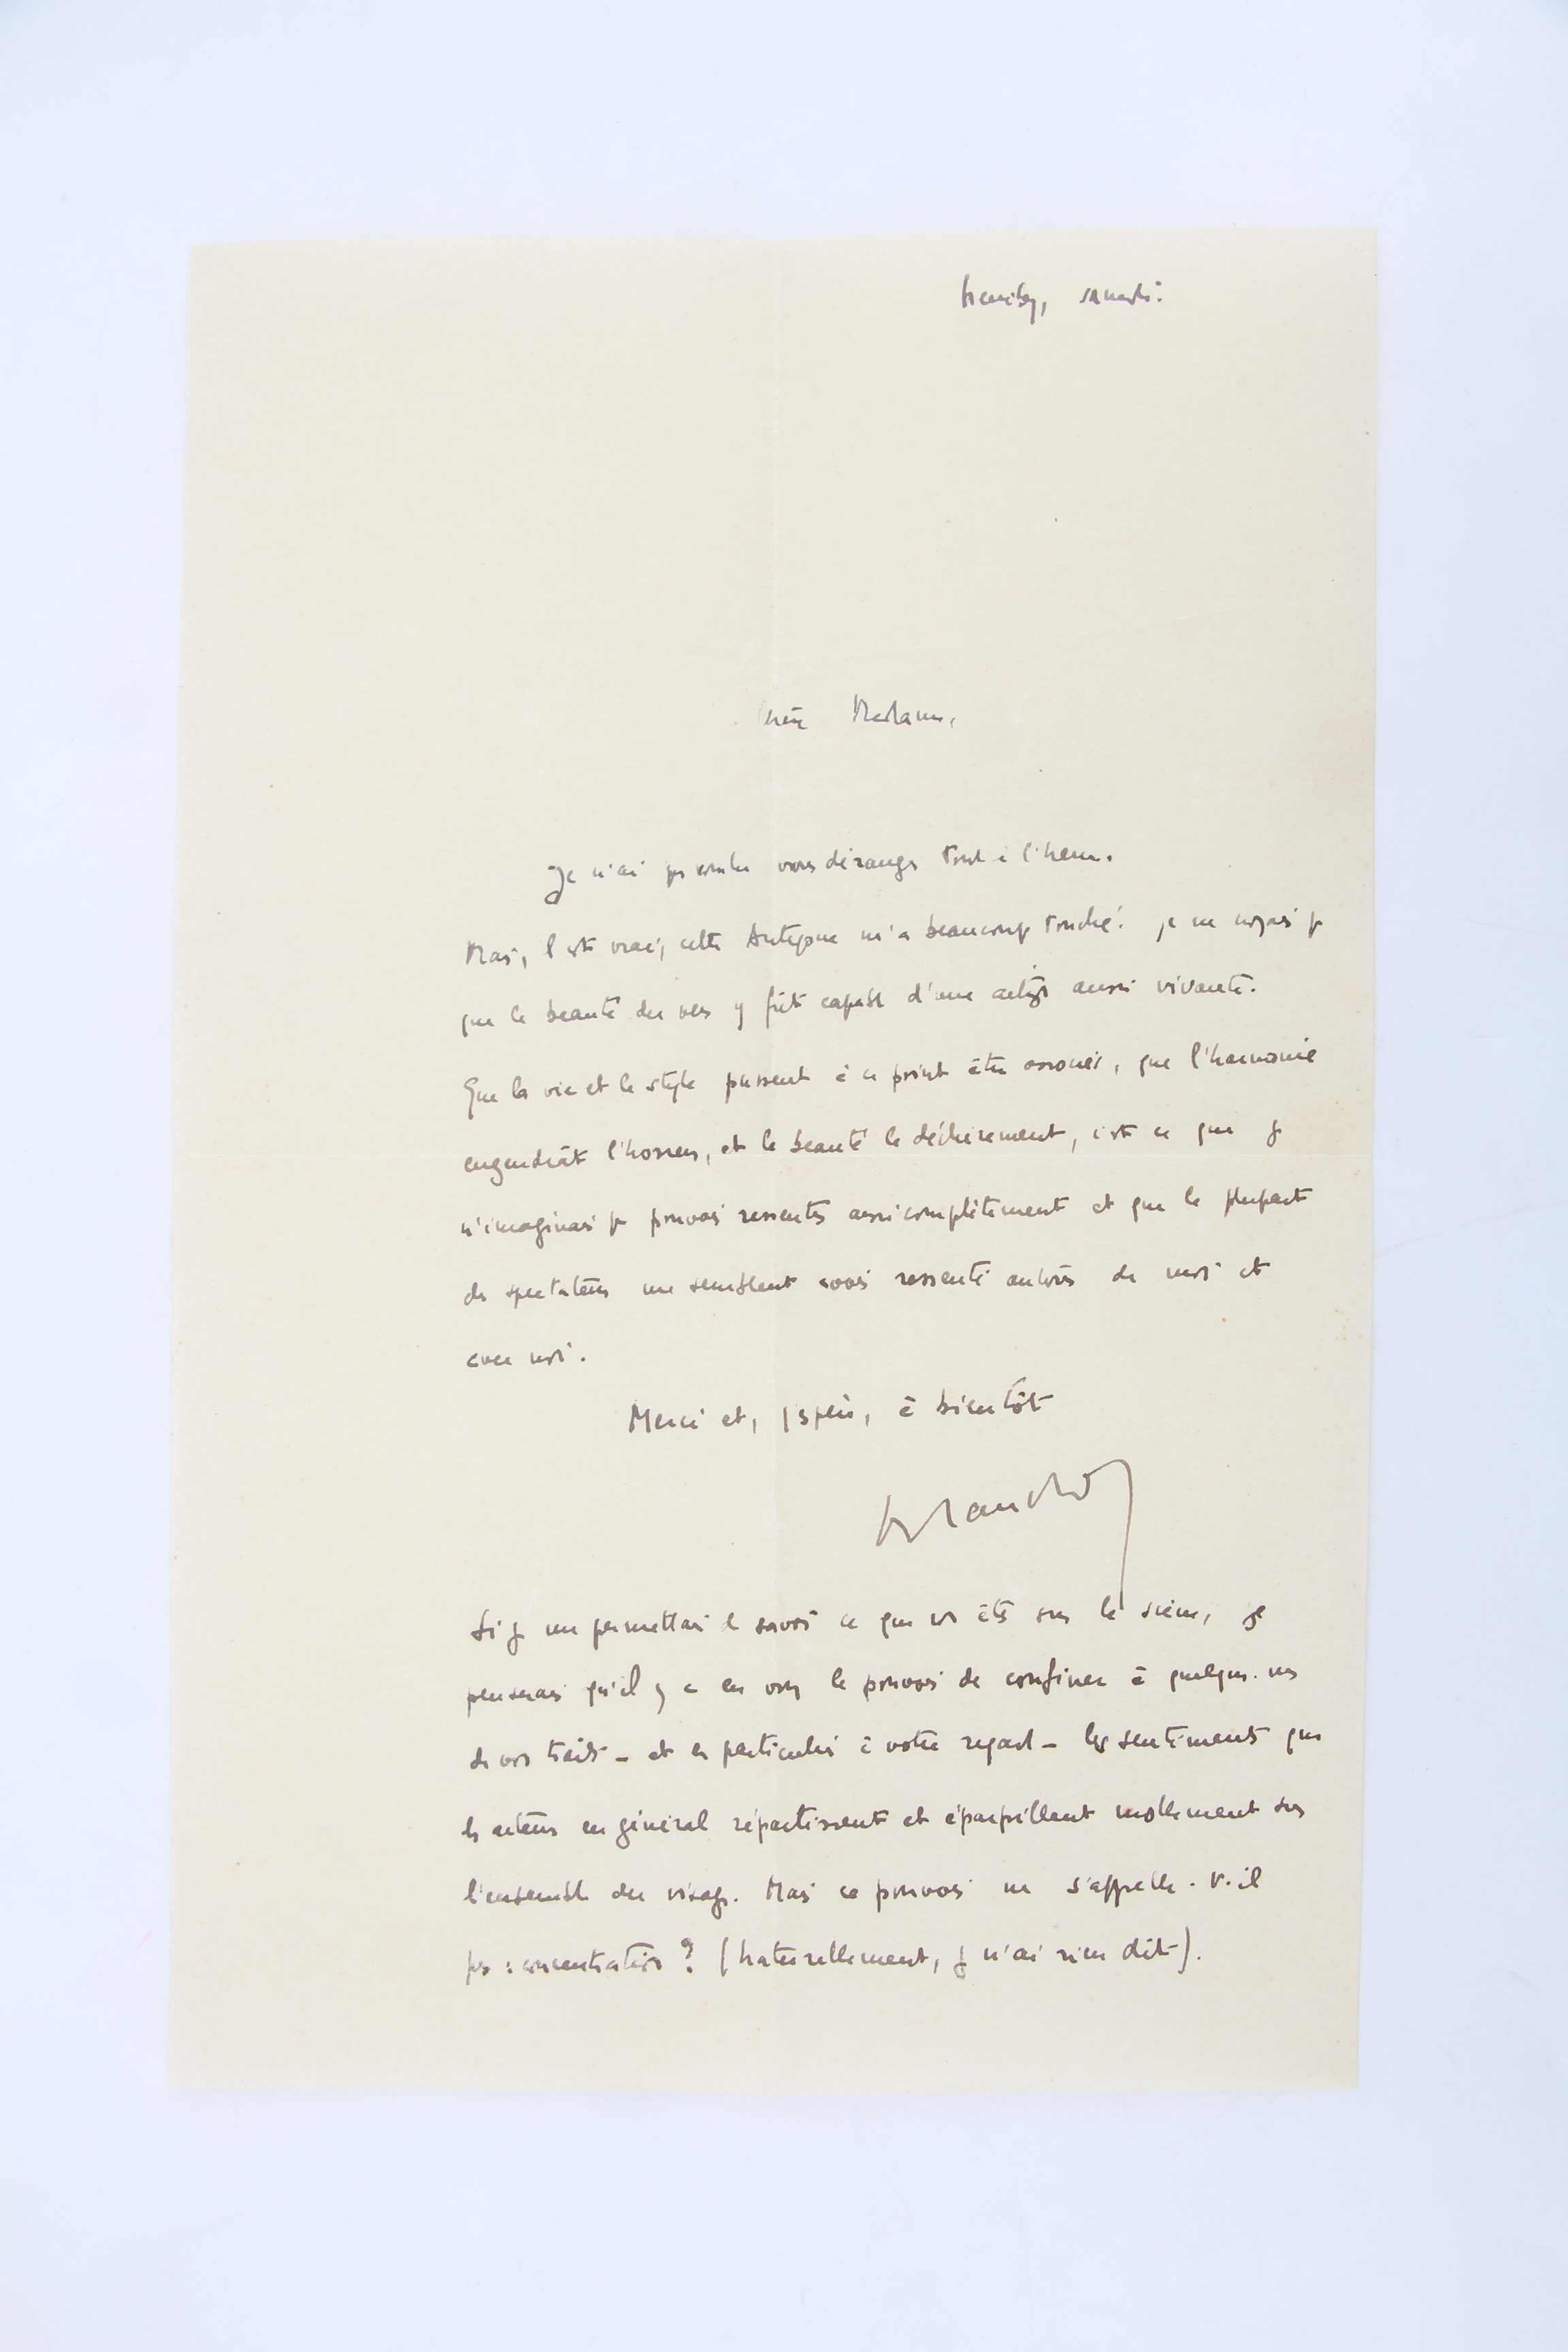 samedi.
Chère Madame,
Je n'ai pas voulu vous déranger tout à l'heure.
Mais, c'est vrai, cette Antigone m'a beaucoup touché. je ne croyais pas
que la beauté du vers y fût capable d'une action aussi vivante.
Que la vie et le style pussent à ce point être associés, que l'harmonie
engendrât l'horreur, et la beauté le déchirement, c'est ce que je
n'imaginais pas pouvoir ressentir aussi complètement et que la plupart
des spectateurs me semblent avoir ressenti autour de moi et
avec moi.
Merci et, j'espère, à bientôt
Si je me permettais de savoir ce que vs êtes sur la scène, je
penserais qu'il y a en vous le pouvoir de confiner à quelques-uns
de vos traits - et en particulier à votre regard - les sentiments que
les acteurs en général répartissent et éparpillent mollement sur
l'ensemble du visage. Mais ce pouvoir ne s'appelle-t-il
pas : concentration ? (naturellement, je n'ai rien dit).